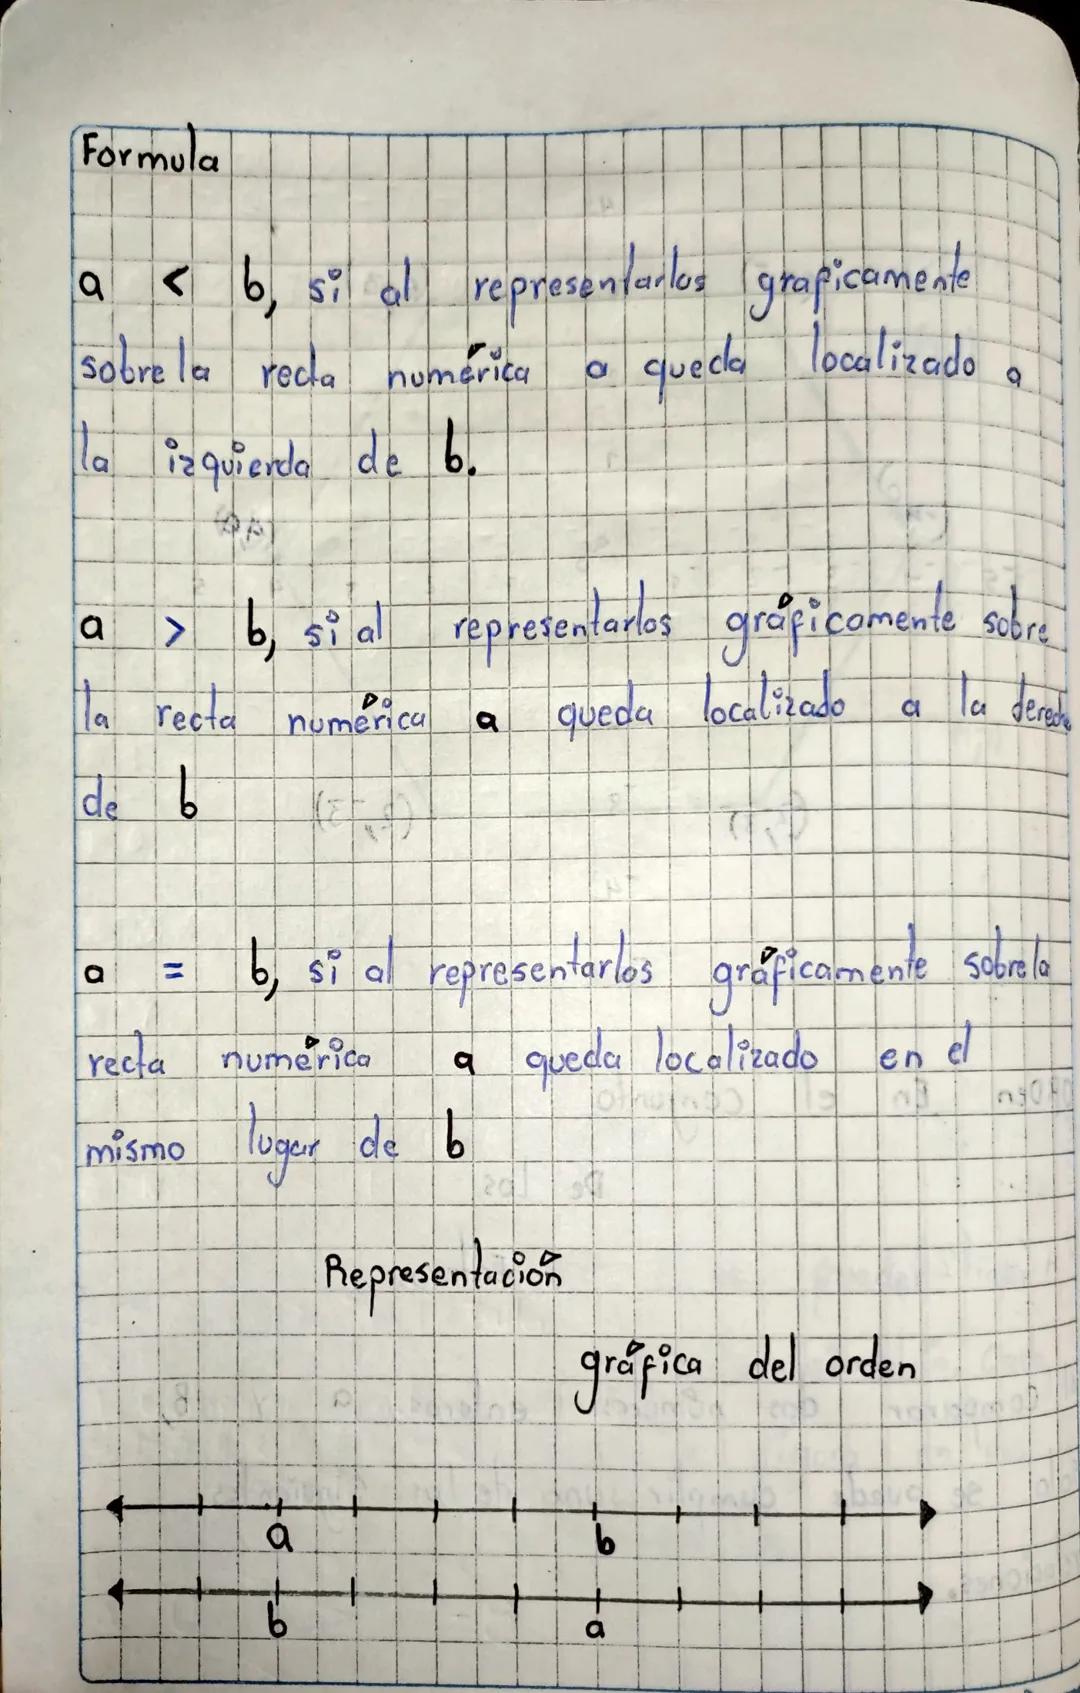 Formula
a < b, si al representarlos graficamente
sobre la recta numérica a queda localizado a
la izquierda de b.
a > b, si al representarlos gráficamente sobre
la recta numérica a queda localizado a la derecha
de b
a = b, si al representarlos gráficamente sobre la
recta numérica a queda localizado en el
mismo lugar de b
Representación
gráfica del orden
a b
b a